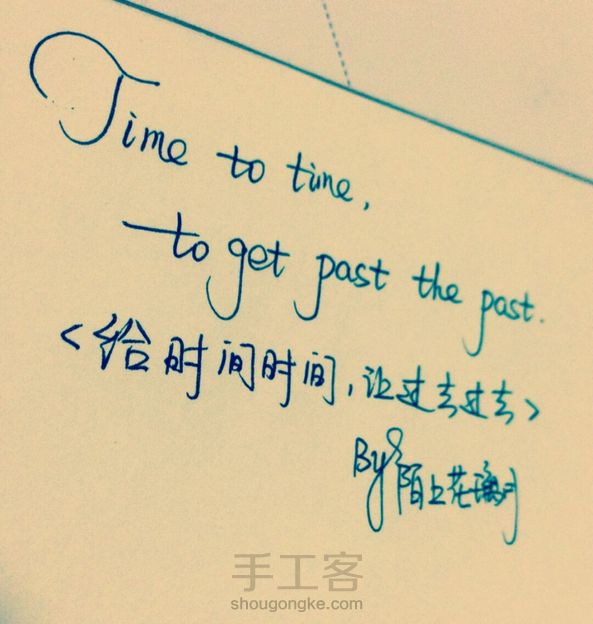 Time to time,
to get past the past.
<给时间时间,让过去过去>
By 陌上花
手工客
shougongke.com